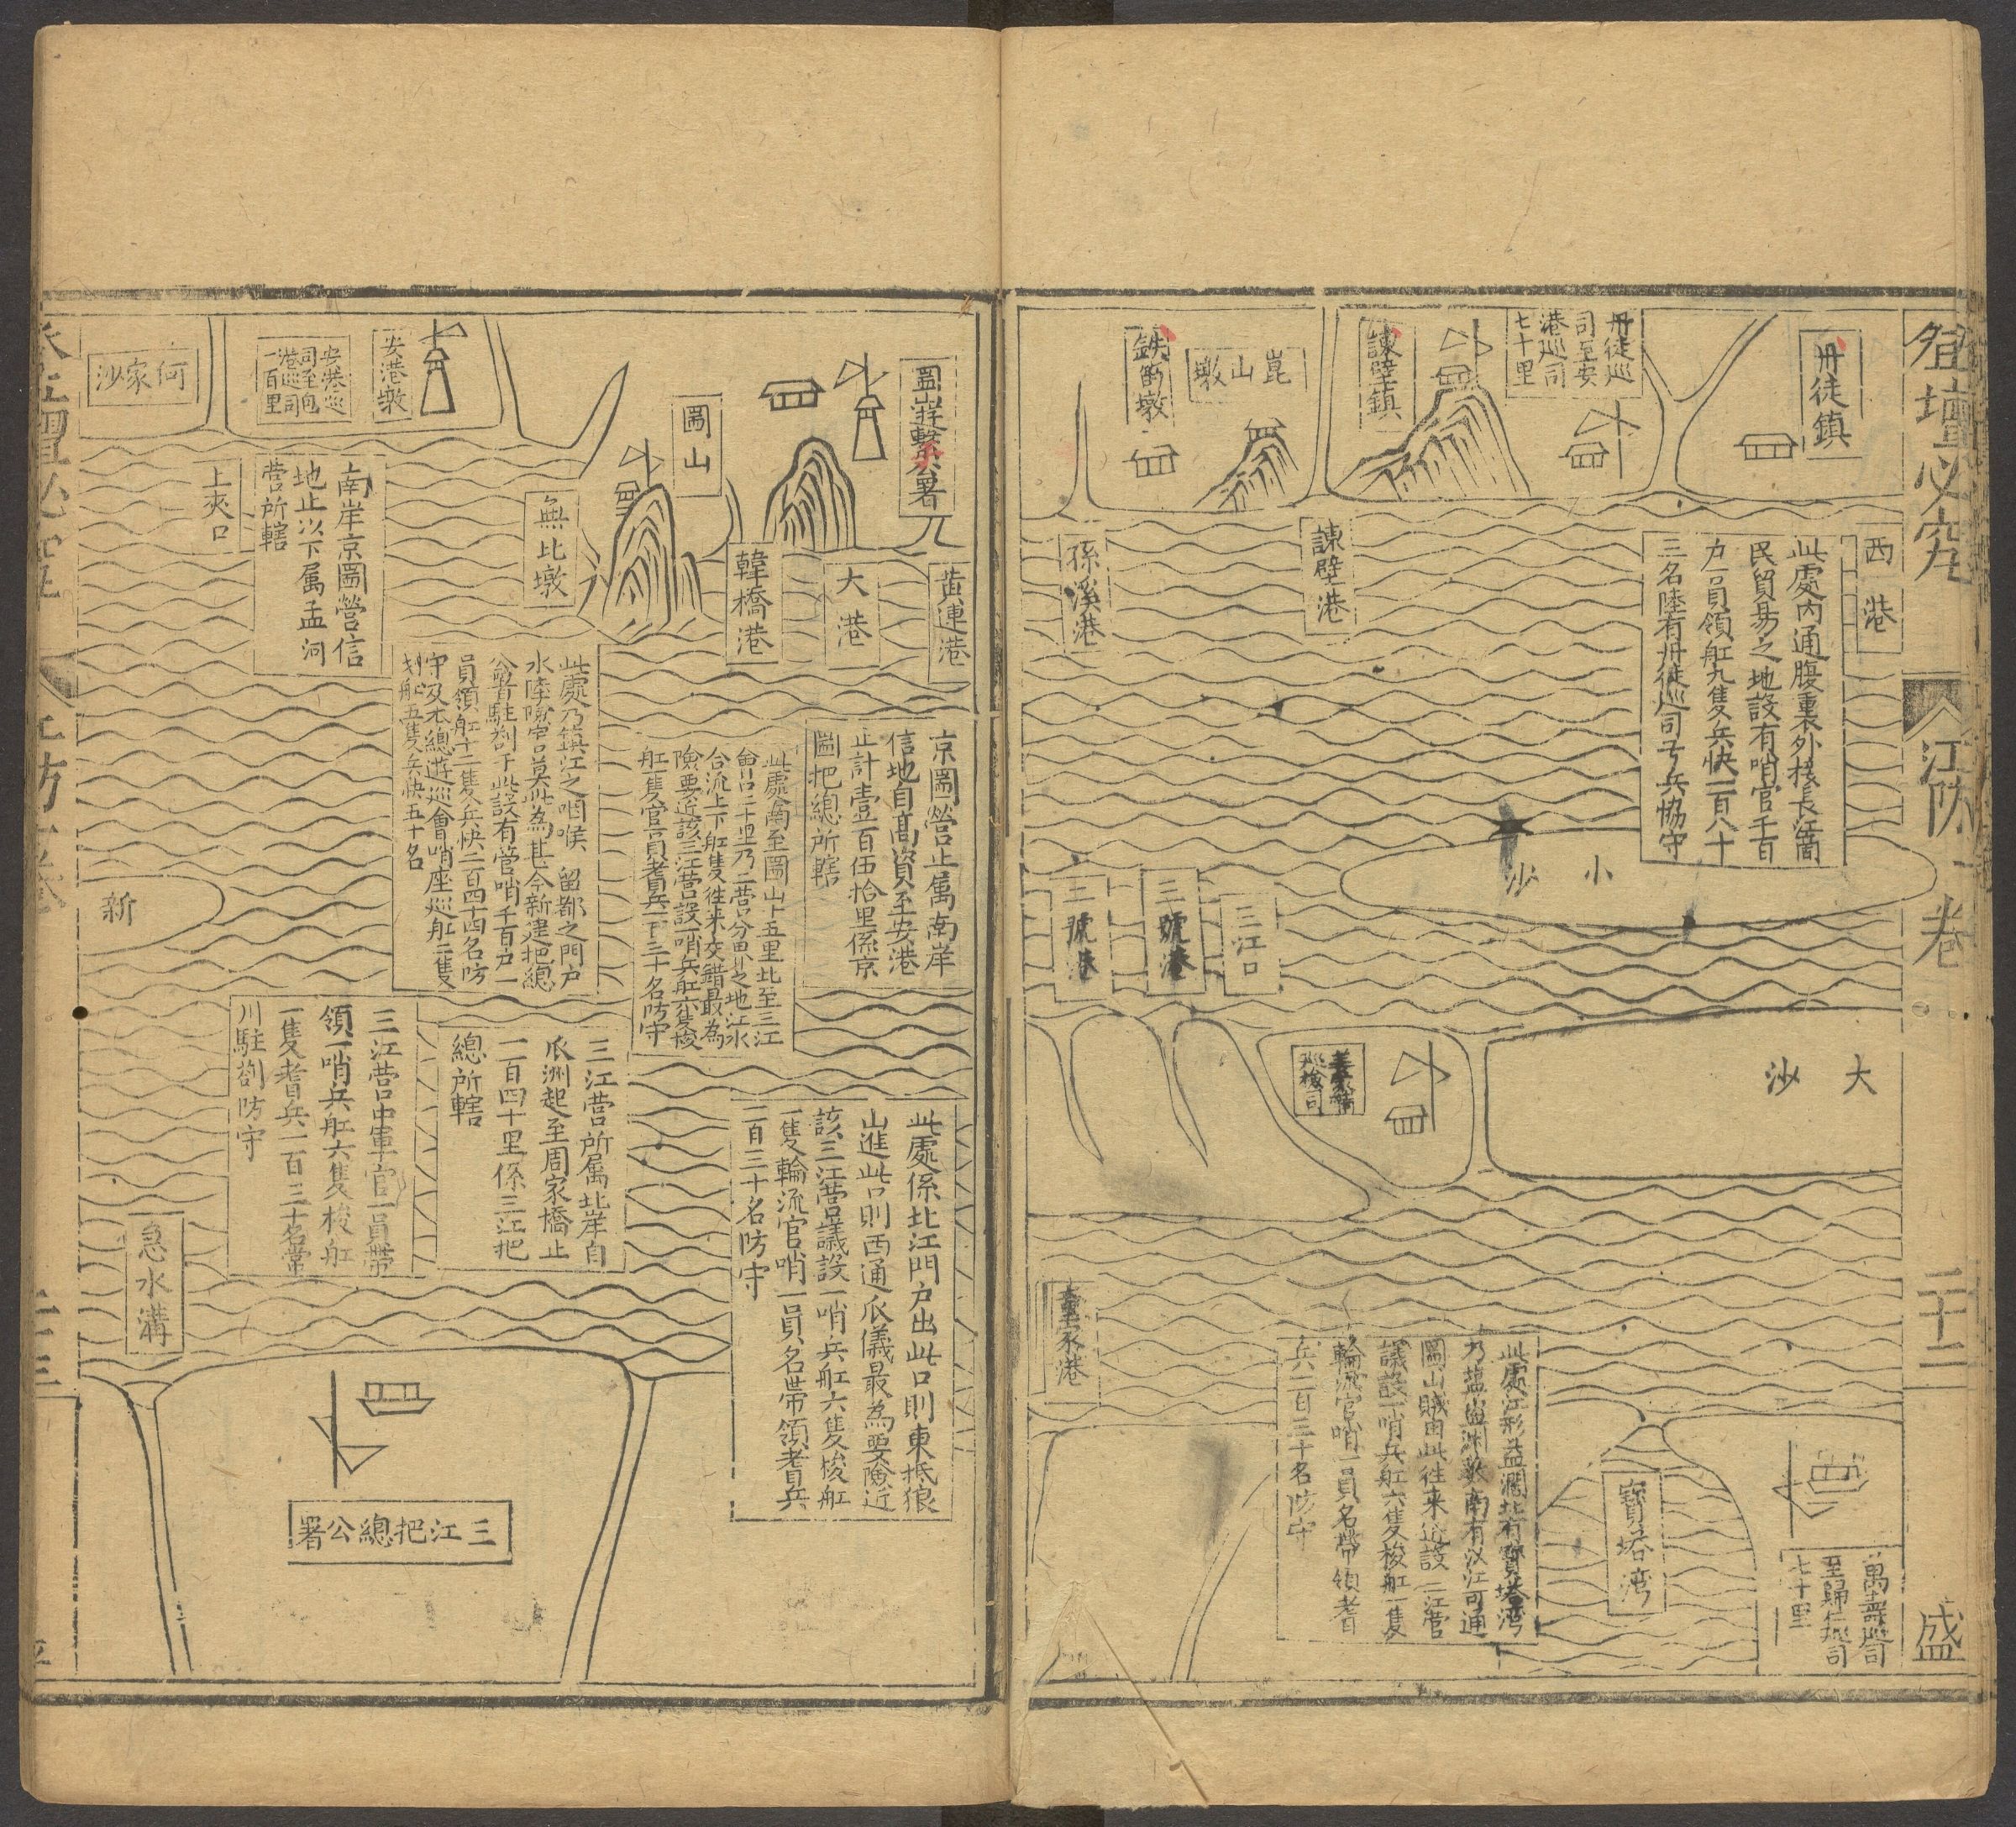 登壇必究
江防 卷
二十二
盛
丹徒鎮
丹徒巡
司至安
港巡司
七十里
諫壁鎮
崑山墩
鉄墩
西港
此處內通腹裏外接長江商
民貿易之地設有哨官千百
戶一員領舡九隻兵快一百八十
三名陸有丹徒巡司弓兵協守
諫壁港
孫溪港
小沙
三江口
三號港
二號港
大沙
巡檢司
家港
此處江形益濶北有寶塔湾
乃塩盜渊藪南有汊江可通
圌山賊由此徃来近設三江營
議設一哨兵舡六隻梭舡一隻
輪流官哨一員名帶領耆
兵一百三十名防守
寶塔湾
萬壽巡司
至歸仁巡司
七十里
圌山遊擊公署
圌山
黃連港
大港
韓橋港
無比墩
安港墩
安港巡
司至包
港巡司
一百里
何家沙
南岸京圌營信
地止以下属孟河
營所轄
上夾口
京圌營止属南岸
信地自高資至安港
止計壹百伍拾里係京
圌把總所轄
此處南至圌山十五里北至三江
會口二十里乃二營分界之地江水
合流上下舡隻徃来交錯最為
險要近該三江營設一哨兵舡六隻梭
舡一隻官一員耆兵一百三十名防守
此處乃鎮江之咽喉 留都之門戶
水陸險害莫此為甚今新建把總
公署駐劄于此設有營哨千百戶一
員領舡十二隻兵快二百四十四名防
守及本總遊巡會哨座巡舡二隻
刬船五隻兵快五十名
新
此處係北江門户出此口則東抵狼
山進此口則西通瓜儀最為要險近
該三江營議設一哨兵舡六隻梭舡
一隻輪流官哨一員名帶領耆兵
一百三十名防守
三江營所属北岸自
瓜洲起至周家橋止
一百四十里係三江把
總所轄
三江營中軍官一員帶
領一哨兵舡六隻梭舡
一隻耆兵一百三十名常
川駐劄防守
急水溝
三江把總公署